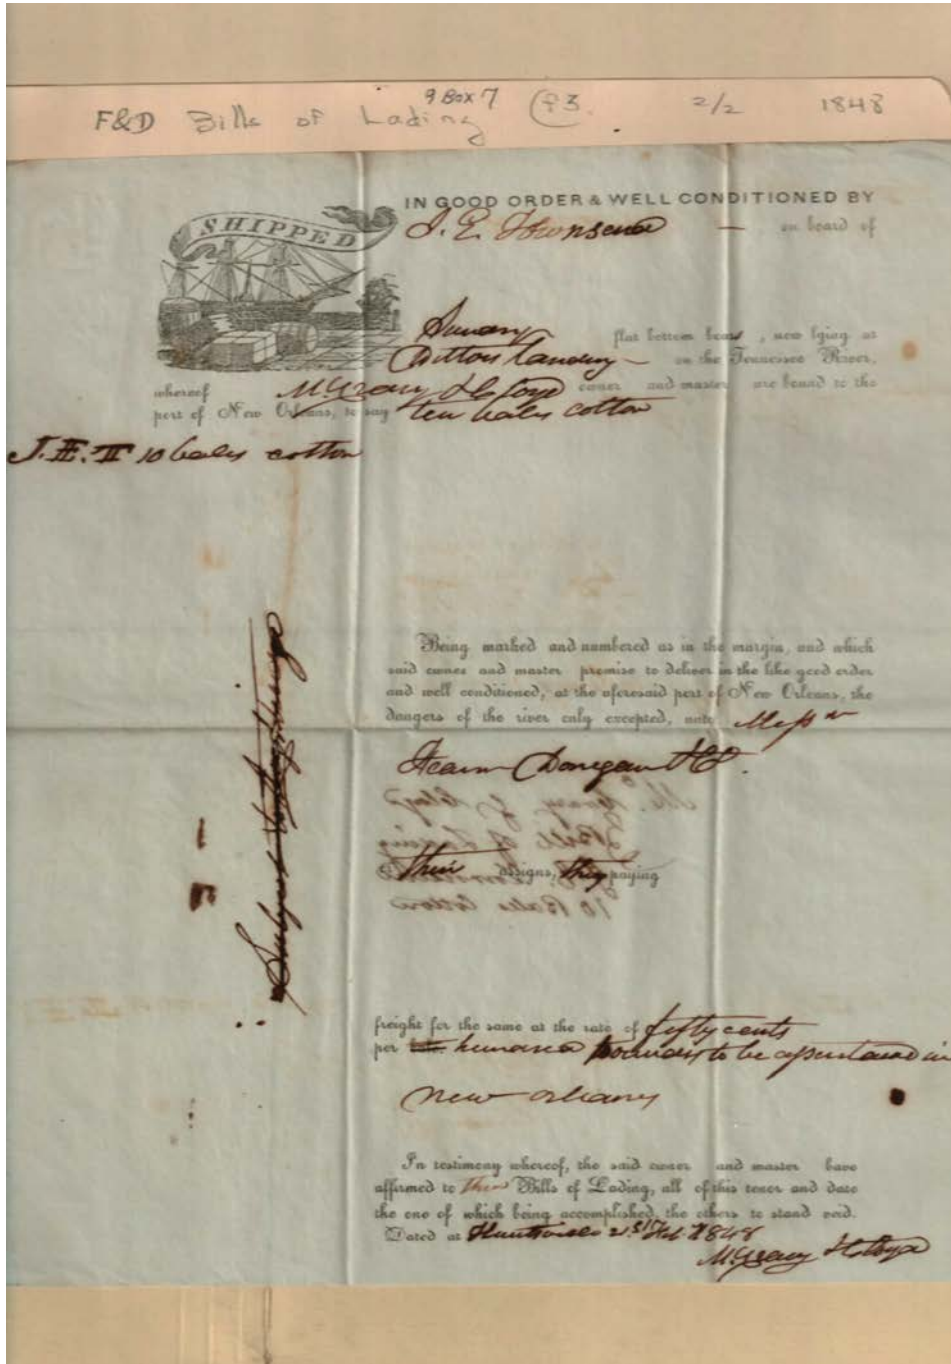 9 Box 7
F&D Bills of Lading 2/2 1848
SHIPPED
IN GOOD ORDER & WELL CONDITIONED BY
J. E. Townsend — on board of
flat bottom boats, now lying at
Ditton landing — on the Tennessee River,
whereof owner and master are bound to the
port of New Orleans, to say ten bales cotton
J. E. T 10 bales cotton
Being marked and numbered as in the margin, and which
said owner and master promise to deliver in the like good order
and well conditioned, at the aforesaid port of New Orleans, the
dangers of the river only excepted, unto Messrs
Fearn Donegan & Co.
their assigns, they paying
freight for the same at the rate of fifty cents
per hundred pounds to be ascertained in
New Orleans
In testimony whereof, the said owner and master have
affirmed to three Bills of Lading, all of this tenor and date
the one of which being accomplished, the others to stand void.
Dated at Huntsville 21st Feb 1848